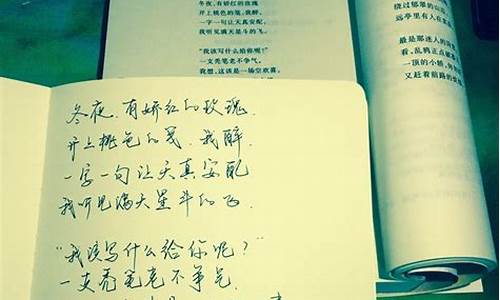 冬夜，有娇红的玫瑰
开上桃色的笺，我醉，
一字一句让天真安配，
我听见满天星斗的飞。
“我该写什么给你呢？”
一支秃笔老不争气。
我想，这该是一场空欢喜。
绕过郁翠的山
远亭里有人在
最是那迷人的
看，乱鸦正点
一顶的小轿，
又赶着前路的
冬夜，有娇红的玫瑰，
开上桃色的笺，我醉，
一字一句让天真安配
我听见满天星斗的飞。
“我该写什么给你呢？”
一支秃笔老不争气。